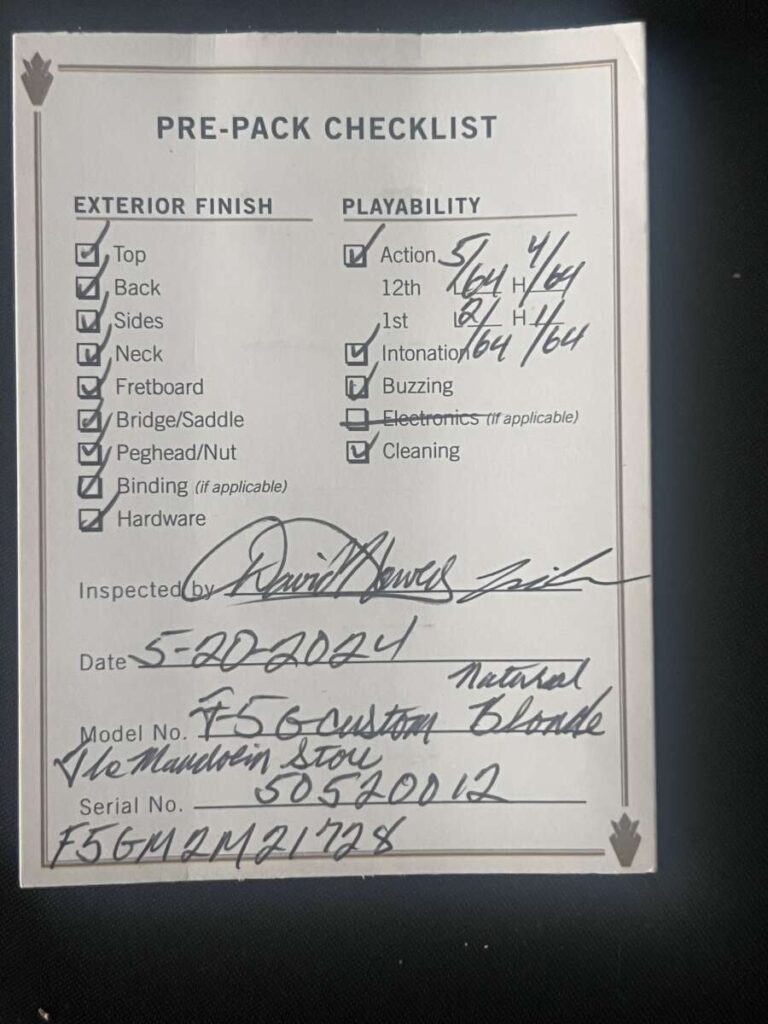 PRE-PACK CHECKLIST
EXTERIOR FINISH
Top
Back
Sides
Neck
Fretboard
Bridge/Saddle
Peghead/Nut
Binding (if applicable)
Hardware
PLAYABILITY
Action 5/64 4/64
12th L H
1st L 2/64 H 1/64
Intonation
Buzzing
Electronics (if applicable)
Cleaning
Inspected by David
Date 5-20-2024
Natural
Model No. F5G custom Blonde
The Mandolin Store
Serial No. 50520012
F5GM2M21728